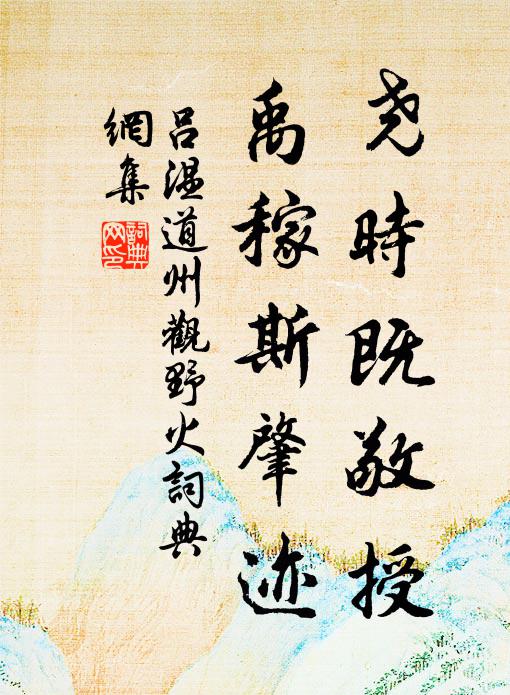 尧時既敬授
禹稼斯肇迹
呂温道州觀野火詞典
網集
詞典
网印